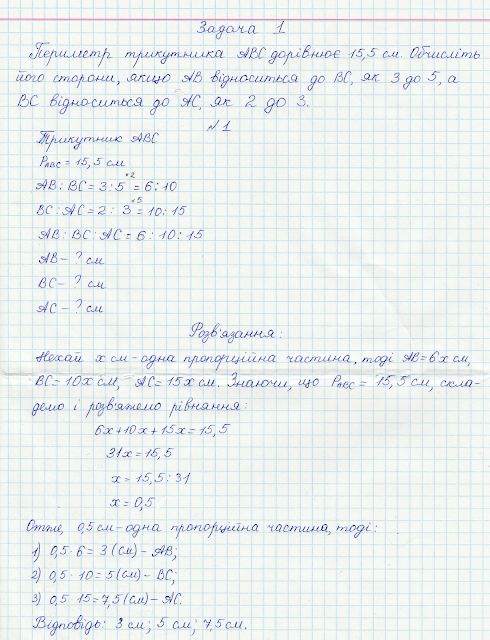 Задача 1
Периметр трикутника ABC дорівнює 15,5 см. Обчисліть
його сторони, якщо AB відноситься до BC, як 3 до 5, а
BC відноситься до AC, як 2 до 3.
№1
Трикутник ABC
P△ABC = 15,5 см
AB : BC = 3 : 5 ·2 = 6 : 10
BC : AC = 2 : 3 ·5 = 10 : 15
AB : BC : AC = 6 : 10 : 15
AB - ? см
BC - ? см
AC - ? см
Розв'язання:
Нехай x см - одна пропорційна частина, тоді AB = 6x см,
BC = 10x см, AC = 15x см. Знаючи, що P△ABC = 15,5 см, скла-
демо і розв'яжемо рівняння:
6x+10x+15x=15,5
31x=15,5
x = 15,5 : 31
x = 0,5
Отже, 0,5 см - одна пропорційна частина, тоді:
1) 0,5 · 6 = 3 (см) - AB;
2) 0,5 · 10 = 5 (см) - BC;
3) 0,5 · 15 = 7,5 (см) - AC.
Відповідь: 3 см; 5 см; 7,5 см.